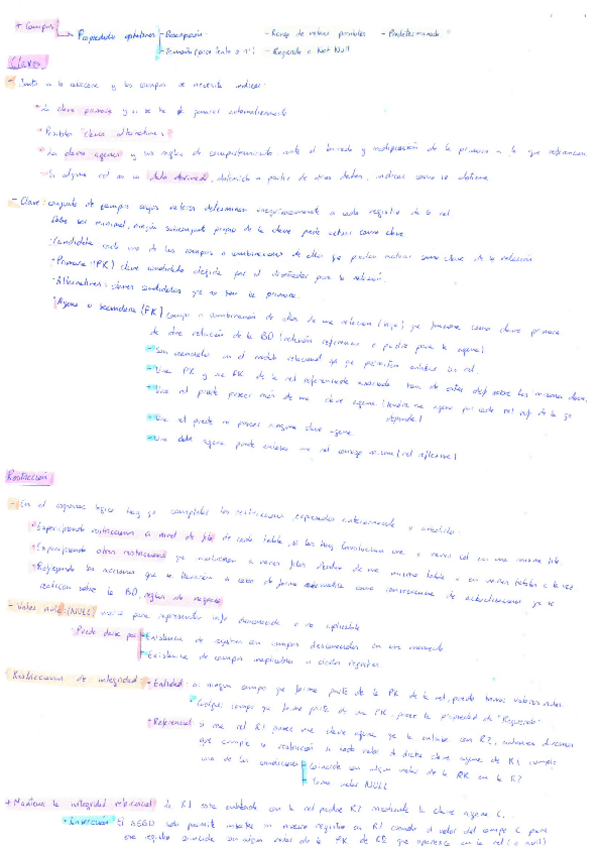 + Campos → Propiedades opcionales - Descripción - Rango de valores posibles - Predeterminado
- Tamaño - Requerido o Not Null
Claves
- Junto a la y los campos se necesita indicar:
La clave primaria y si se ha de generar automáticamente
Posibles claves alternativas
La clave ajena y sus reglas de comportamiento ante el borrado y modificación de la primaria a la que referencian
Si algún es un dato derivado, obtenido a partir de otros datos, indicar como se obtiene.
- Clave: conjunto de campos cuyos valores determinan inequívocamente a cada registro de la rel.
Debe ser minimal, ningún subconjunto propio de la clave puede actuar como clave
Candidata: cada uno de los campos o combinaciones de ellos que podrían actuar como clave de la relación
Primaria (PK) clave candidata elegida por el diseñador para la relación.
Alternativas: claves candidatas que no son la primaria.
Ajena o secundaria (FK) campo o combinación de ellos de una relación (hija) que funciona como clave primaria
de otra relación de la BD (relación referencia o padre para la ajena)
Son esenciales en el modelo relacional ya que permiten enlazar las rel.
Una PK y una FK de la rel referenciante asociada han de estar def sobre los mismos
Una rel puede poseer más de una clave ajena (tendrá una ajena por cada rel ref de la que
depende)
Una rel puede no poseer ninguna clave ajena
Una clave ajena puede enlazar una rel consigo misma (rel reflexiva)
Restricción
- En el esquema lógico hay que completar las restricciones expresadas
Especificando restricciones a nivel de fila de cada tabla, si las hay (involucran una o varias col en una misma fila
Especificando otras restricciones que involucren a varias filas dentro de una misma tabla o en varias tablas a la vez
Reflejando las acciones que se llevarán a cabo de forma automática como consecuencia de actualizaciones que se
realicen sobre la BD, reglas de negocio
- Valor nulo (NULL) marca para representar info desconocida o no aplicable
Puede darse por: Existencia de registros con campos desconocidos en ese momento
Existencia de campos inaplicables a ciertos registros
- Restricciones de integridad - Entidad: ningún campo que forme parte de la PK de la rel, puede tomar valores nulos
Cualquier campo que forme parte de una PK, posee la propiedad de "Requerido"
- Referencial si una rel R1 posee una clave ajena que la enlaza con R2, entonces diremos
que cumple la restricción si cada valor de dicha clave ajena de R1 cumple
una de las condiciones: Coincide con algún valor de la PK en la R2
Toma valor NULL
+ Mantener la integridad referencial: la R1 está enlazada con la rel padre R2 mediante la clave ajena C.
- Inserción: El SGBD solo permite insertar un nuevo registro en R1 cuando el valor del campo C para
ese registro coincide con algún valor de la PK de R2 que aparezca en la rel (o null)